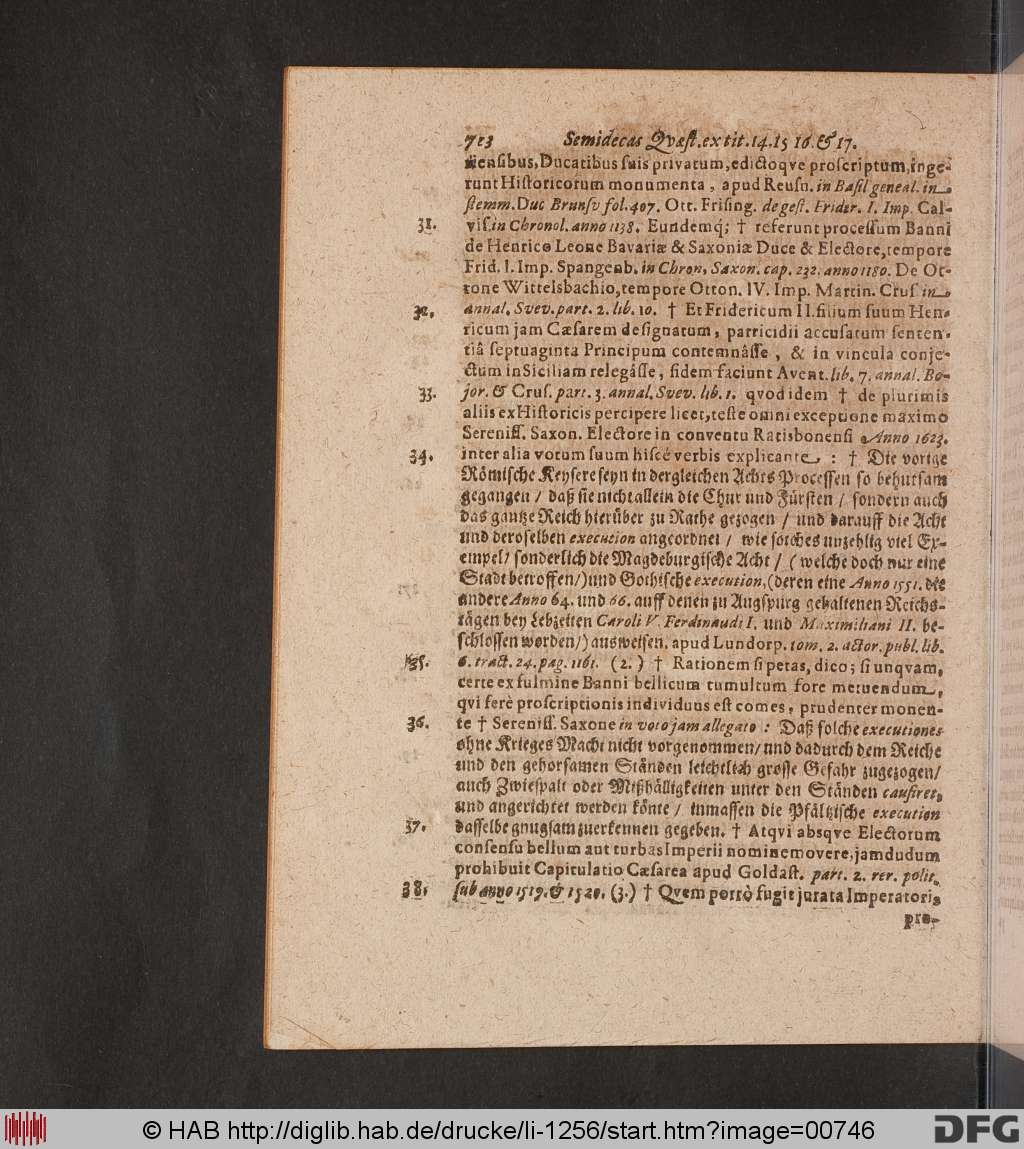 713 Semidecas Qvæst. ex tit. 14. 15 16. & 17.
nensibus, Ducatibus suis privatum, edictoqve proscriptum, inge-
runt Historicorum monumenta, apud Reusn. in Basil geneal. in
stemm. Duc Brunsv fol. 407. Ott. Frising. de gest. Frider. I. Imp. Cal-
31. vis. in Chronol. anno 1138. Eundemq́; † referunt processum Banni
de Henrico Leone Bavariæ & Saxoniæ Duce & Electore, tempore
Frid. I. Imp. Spangenb. in Chron, Saxon. cap. 232. anno 1180. De Ot-
tone Wittelsbachio, tempore Otton. IV. Imp. Martin. Crus in
32. annal. Svev. part. 2. lib. 10. † Et Fridericum II. filium suum Hen-
ricum jam Cæsarem designatum, parricidii accusatum senten-
tiâ septuaginta Principum contemnâsse, & in vincula conje-
ctum in Siciliam relegâsse, fidem faciunt Avent. lib. 7. annal. Bo-
33. jor. & Crus. part. 3. annal. Svev. lib. 1. qvod idem † de plurimis
aliis ex Historicis percipere licet, teste omni exceptione maximo
Sereniss. Saxon. Electore in conventu Ratisbonensi Anno 1623.
34. inter alia votum suum hiscé verbis explicante : † Die vorige
Römische Keysere seyn in dergleichen Achts Processen so behutsam
gegangen / daß sie nicht allein die Chur und Fürsten / sondern auch
das gantze Reich hierüber zu Rathe gezogen / und darauff die Acht
und deroselben execution angeordnet / wie solches unzehlig viel Ex-
empel / sonderlich die Magdeburgische Acht / (welche doch nur eine
Stadt betroffen /) und Gothische execution, (deren eine Anno 1551. die
andere Anno 64. und 66. auff denen zu Augspurg gehaltenen Reichs-
tägen bey Lebzeiten Caroli V. Ferdinandi I. und Maximiliani II. be-
schlossen worden /) ausweisen. apud Lundorp. tom. 2. actor. publ. lib.
35. 6. tract. 24. pag. 1161. (2.) † Rationem si petas, dico; si unqvam,
certe ex fulmine Banni bellicum tumultum fore metuendum,
qvi ferè proscriptionis individuus est comes, prudenter monen-
36. te † Sereniss. Saxone in voto jam allegato : Daß solche executiones
ohne Krieges Macht nicht vorgenommen / und dadurch dem Reiche
und den gehorsamen Ständen leichtlich grosse Gefahr zugezogen /
auch Zwiespalt oder Mißhälligkeiten unter den Ständen causiret,
und angerichtet werden könte / inmassen die Pfältzische execution
37. dasselbe gnugsam zuerkennen gegeben. † Atqvi absqve Electorum
consensu bellum aut turbas Imperii nomine movere, jamdudum
prohibuit Capitulatio Cæsarea apud Goldast. part. 2. rer. polit.
38. sub anno 1519. & 1520. (3.) † Qvem porrò fugit jurata Imperatoris
pro-
© HAB http://diglib.hab.de/drucke/li-1256/start.htm?image=00746
DFG